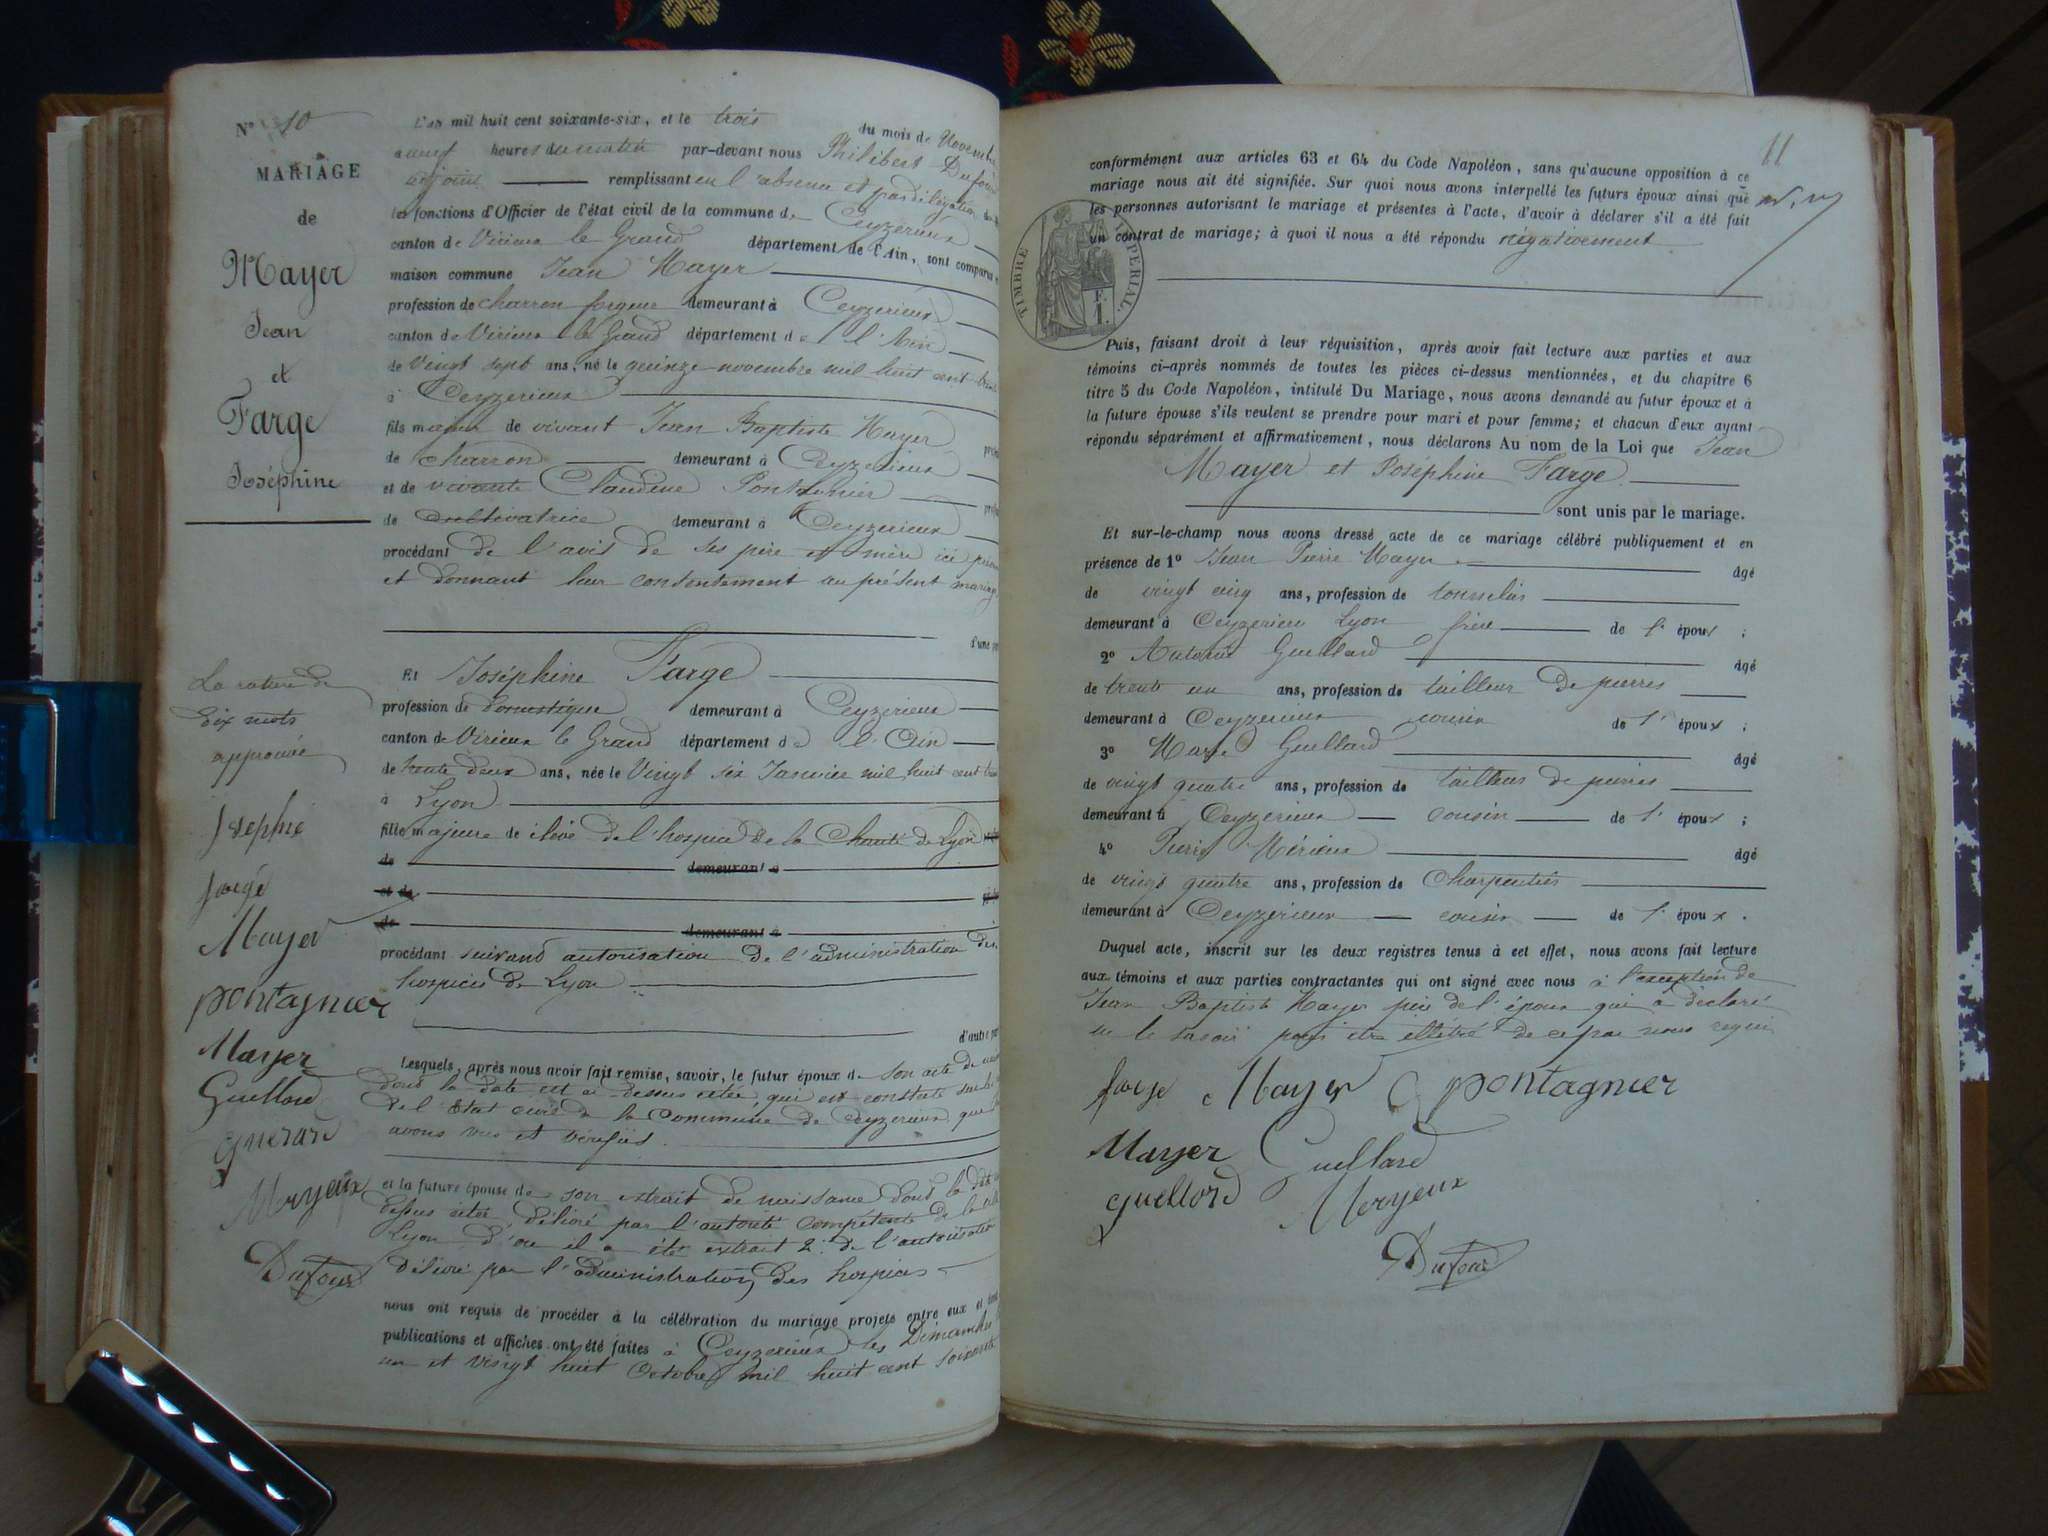 N° 10
MARIAGE
de
Mayer
Jean
et
Farge
Joséphine
La rature de
dix mots
approuvée
Josephe
farge
Mayer
pontagnier
Mayer
Guelland
Meryeux
Dufour
L'an mil huit cent soixante-six, et le trois du mois de Novembre
a neuf heures du matin par-devant nous Philibert Dufour
adjoint remplissant en l'absence et par délégation
les fonctions d'Officier de l'état civil de la commune de Ceyzerieux
canton de Virieux le Grand département de l'Ain, sont comparus
maison commune Jean Mayer
profession de charron forgeur demeurant à Ceyzerieux
canton de Virieux le Grand département de l'Ain
de Vingt sept ans, né le quinze novembre mil huit cent
à Ceyzerieux
fils majeur de vivant Jean Baptiste Mayer
de charron demeurant à Ceyzerieux
et de vivante Claudine
de cultivatrice demeurant à Ceyzerieux
procédant de l'avis de ses père et mère ici
et donnant leur consentement au présent mariage
d'une
Et Joséphine Farge
profession de domestique demeurant à Ceyzerieux
canton de Virieux le Grand département de l'Ain
de trente deux ans, née le Vingt six Janvier mil huit cent
à Lyon
fille majeure de élève de l'hospice de la Charité de Lyon
de demeurant à
et de
de demeurant à
procédant suivant autorisation de l'administration des
hospices de Lyon
d'autre
Lesquels, après nous avoir fait remise, savoir, le futur époux de son acte de
dont la date est ci-dessus citée, qui est constaté sur
de l'État civil de la Commune de Ceyzerieux que
avons vus et vérifiés.
et la future épouse de son extrait de naissance dont la date
dessus citée délivré par l'autorité compétente de la
Lyon d'où il a été extrait 2° de l'autorisation
délivré par l'administration des hospices
nous ont requis de procéder à la célébration du mariage projeté entre eux et
publications et affiches ont été faites à Ceyzerieux les Dimanches
un et vingt huit Octobre mil huit cent soixante
11
conformément aux articles 63 et 64 du Code Napoléon, sans qu'aucune opposition à ce
mariage nous ait été signifiée. Sur quoi nous avons interpellé les futurs époux ainsi que
les personnes autorisant le mariage et présentes à l'acte, d'avoir à déclarer s'il a été fait
un contrat de mariage; à quoi il nous a été répondu négativement
TIMBRE IMPERIAL
F.
1.
Puis, faisant droit à leur réquisition, après avoir fait lecture aux parties et aux
témoins ci-après nommés de toutes les pièces ci-dessus mentionnées, et du chapitre 6
titre 5 du Code Napoléon, intitulé Du Mariage, nous avons demandé au futur époux et à
la future épouse s'ils veulent se prendre pour mari et pour femme; et chacun d'eux ayant
répondu séparément et affirmativement, nous déclarons Au nom de la Loi que Jean
Mayer et Joséphine Farge
sont unis par le mariage.
Et sur-le-champ nous avons dressé acte de ce mariage célébré publiquement et en
présence de 1° Jean Pierre Mayer âgé
de vingt cinq ans, profession de tonnelier
demeurant à Ceyzerieu Lyon frère de l'époux ;
2° Antoine Guelland âgé
de trente un ans, profession de tailleur de pierres
demeurant à Ceyzerieux cousin de l'époux ;
3° Guelland âgé
de vingt quatre ans, profession de tailleur de pierres
demeurant à Ceyzerieux cousin de l'époux ;
4° Pierre Mérieux âgé
de vingt quatre ans, profession de Charpentier
demeurant à Ceyzerieux cousin de l'époux .
Duquel acte, inscrit sur les deux registres tenus à cet effet, nous avons fait lecture
aux témoins et aux parties contractantes qui ont signé avec nous à l'exception de
Jean Baptiste Mayer père de l'époux qui a déclaré
ne le savoir pour être illettré de ce par nous requis
farge Mayer pontagnier
Mayer Guelland
guellord Meryeux
Dufour